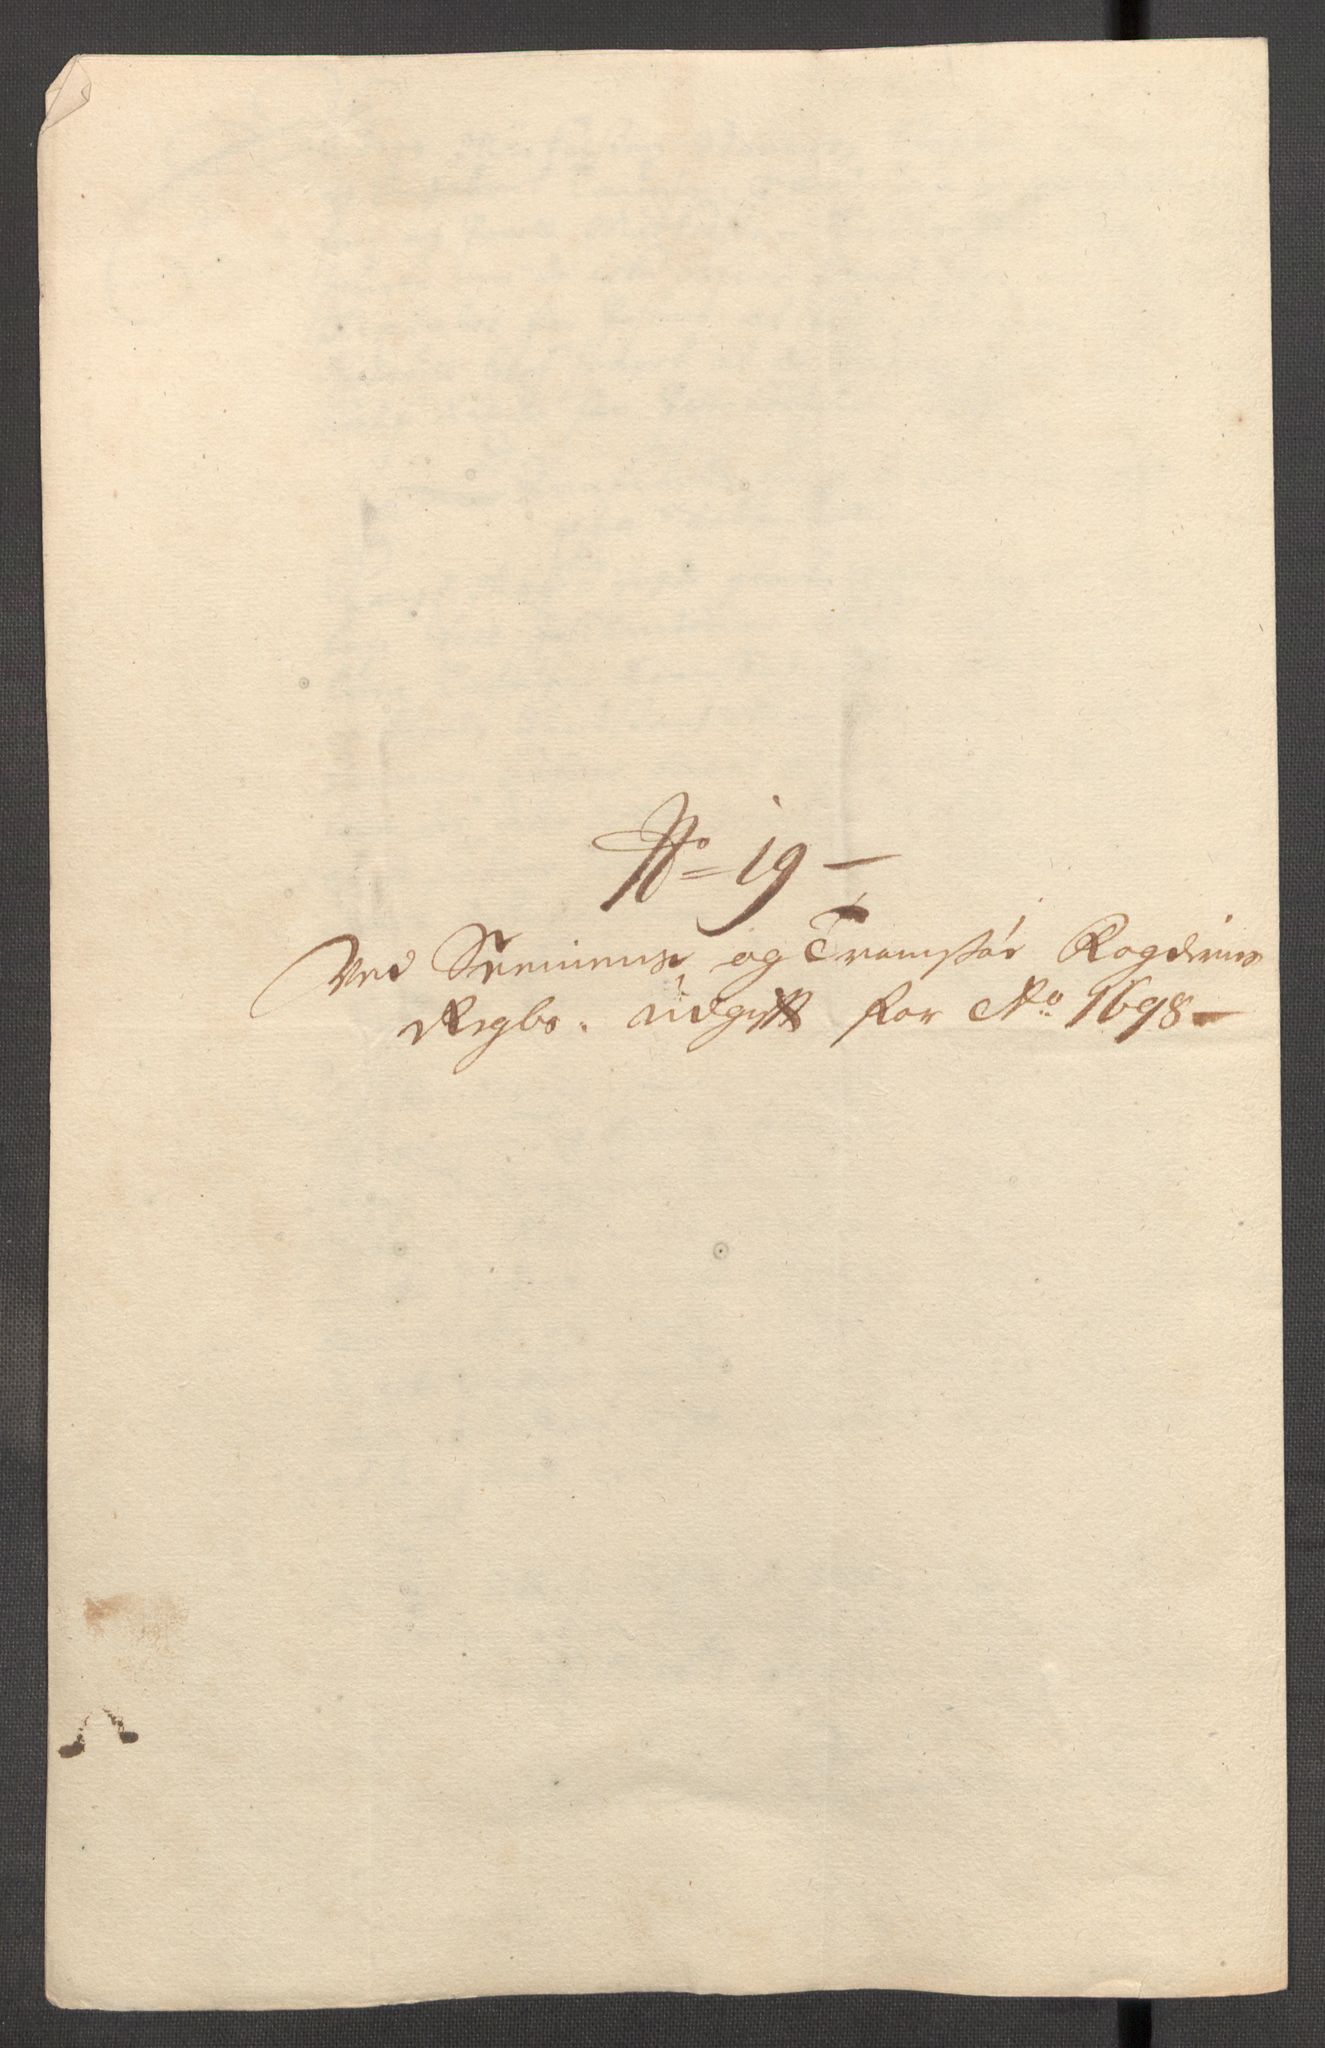 No = 19 –
Ved Senniens og Tromsøe Fogderies
Regbs. Udgifft for Ao 1698 –